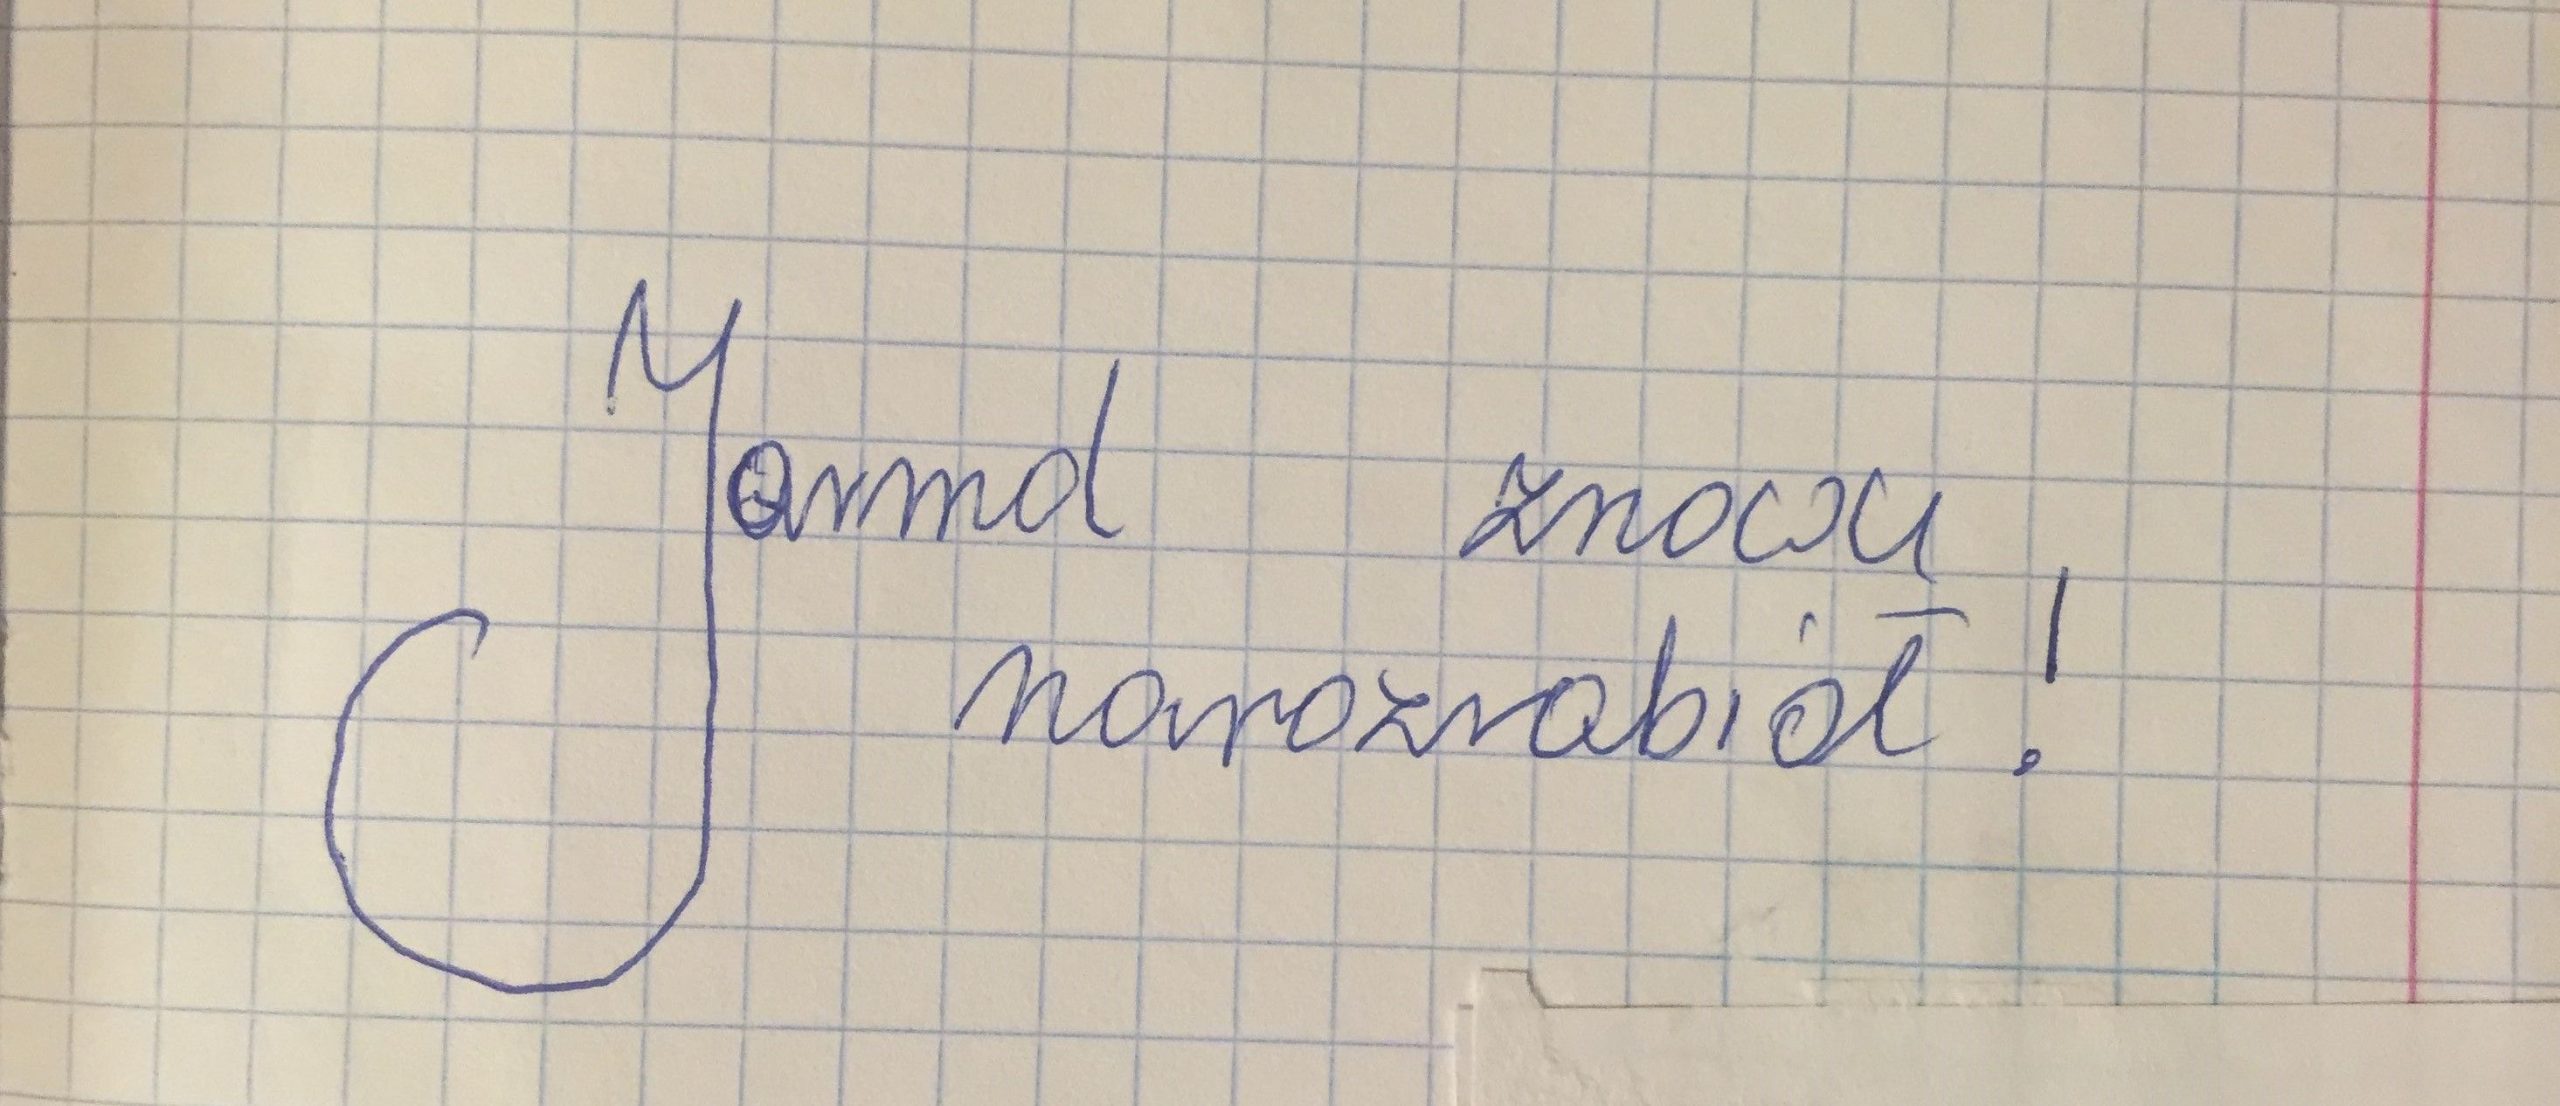 Yarmd znowu
narozrabiał!